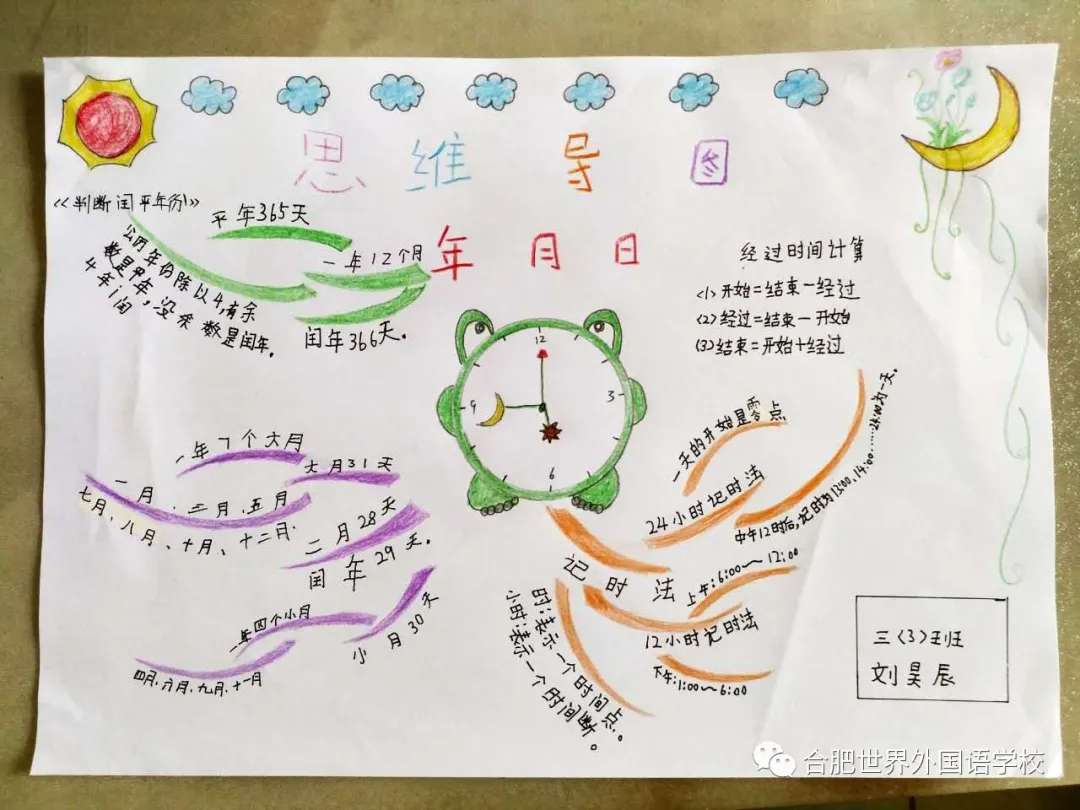 思维导图
年月日
《判断闰平年份》
平年365天
一年12个月
闰年366天。
公历年份除以4,有余
数是平年,没余数是闰年。
4年1闰
经过时间计算
(1)开始=结束-经过
(2)经过=结束-开始
(3)结束=开始+经过
12
3
6
9
一年7个大月
大月31天
一月、三月、五月
七月、八月、十月、十二月.
二月28天
闰年29天。
一年四个小月
小月30天
四月、六月、九月、十一月
一天的开始是零点
24小时记时法
中午12时后,记时为13:00,14:00……
为一天。
记时法
上午:6:00~12:00
12小时记时法
下午:1:00~6:00
时:表示一个时间点。
小时:表示一个时间断。
三(3)班
刘昊辰
合肥世界外国语学校